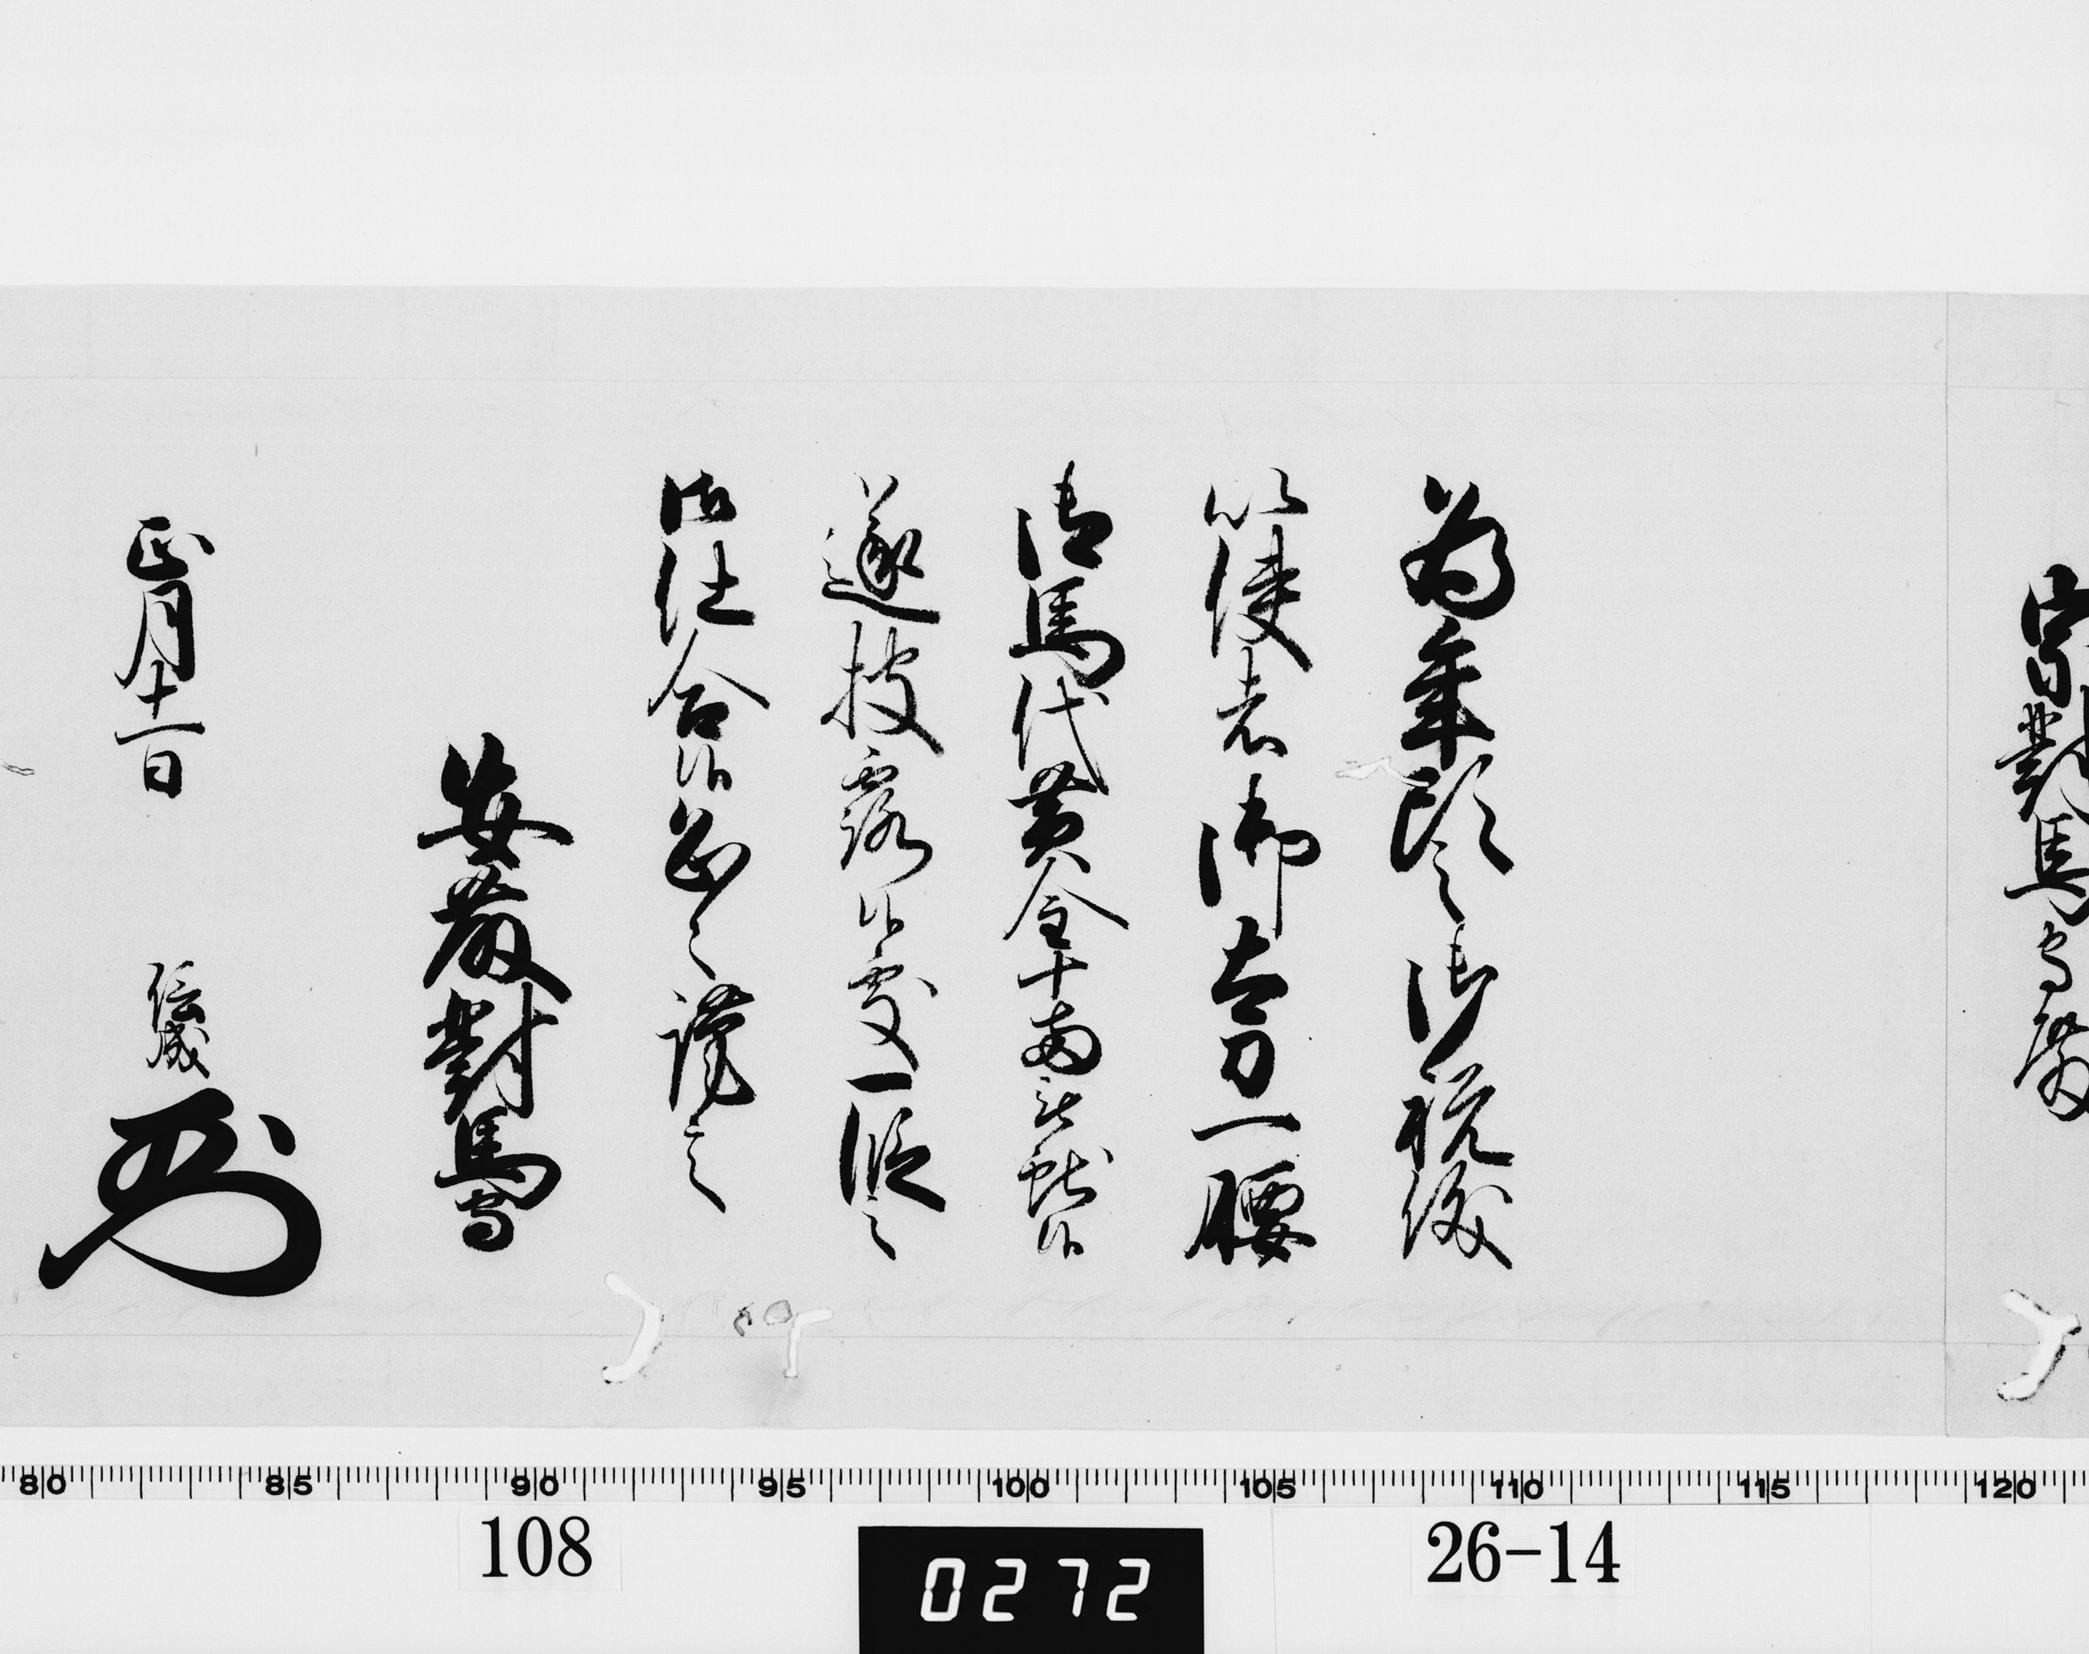 宗對馬守
為年頭之御祝儀
以使者御太刀一腰
御馬代黄金十両被獻候
遂披露候處一段之
御仕合候恐々謹言
安藤對馬守
正月十一日
信成
80 85 90 95 100 105 110 115 120
108
0272
26-14